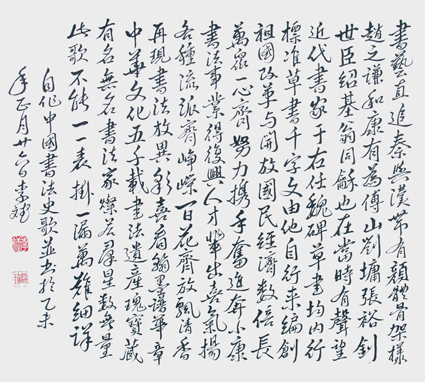 書藝直追秦與漢帶有顏體骨架樣
趙之謙和康有為傅山劉墉張裕釗
世臣紹基翁同龢也在當時有聲望
近代書家于右任魏碑草書均內行
標准草書千字文由他自行來編創
祖國改革与開放國民經濟數倍長
萬眾一心齊努力攜手奮進奔小康
書法事業得復興人才輩出喜氣揚
各種流派齊崢嶸百花齊放飄清香
再現書法放異彩喜看翰墨譜華章
中華文化五千載書法遺產瑰寶藏
有名無名書法家燦若群星數無量
此歌不能一一表掛一漏萬難細詳
自作中國書法史歌並書於乙未
年正月廿六日李